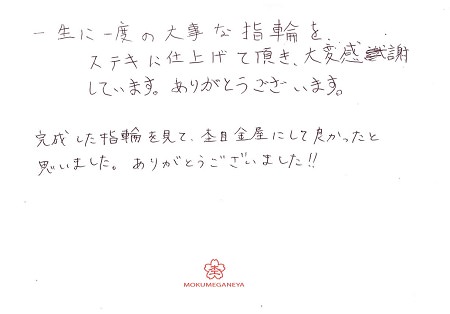 一生に一度の大事な指輪を、
ステキに仕上げて頂き、大変感謝
しています。ありがとうございます。
完成した指輪を見て、杢目金屋にして良かったと
思いました。ありがとうございました!!
杢
MOKUMEGANEYA